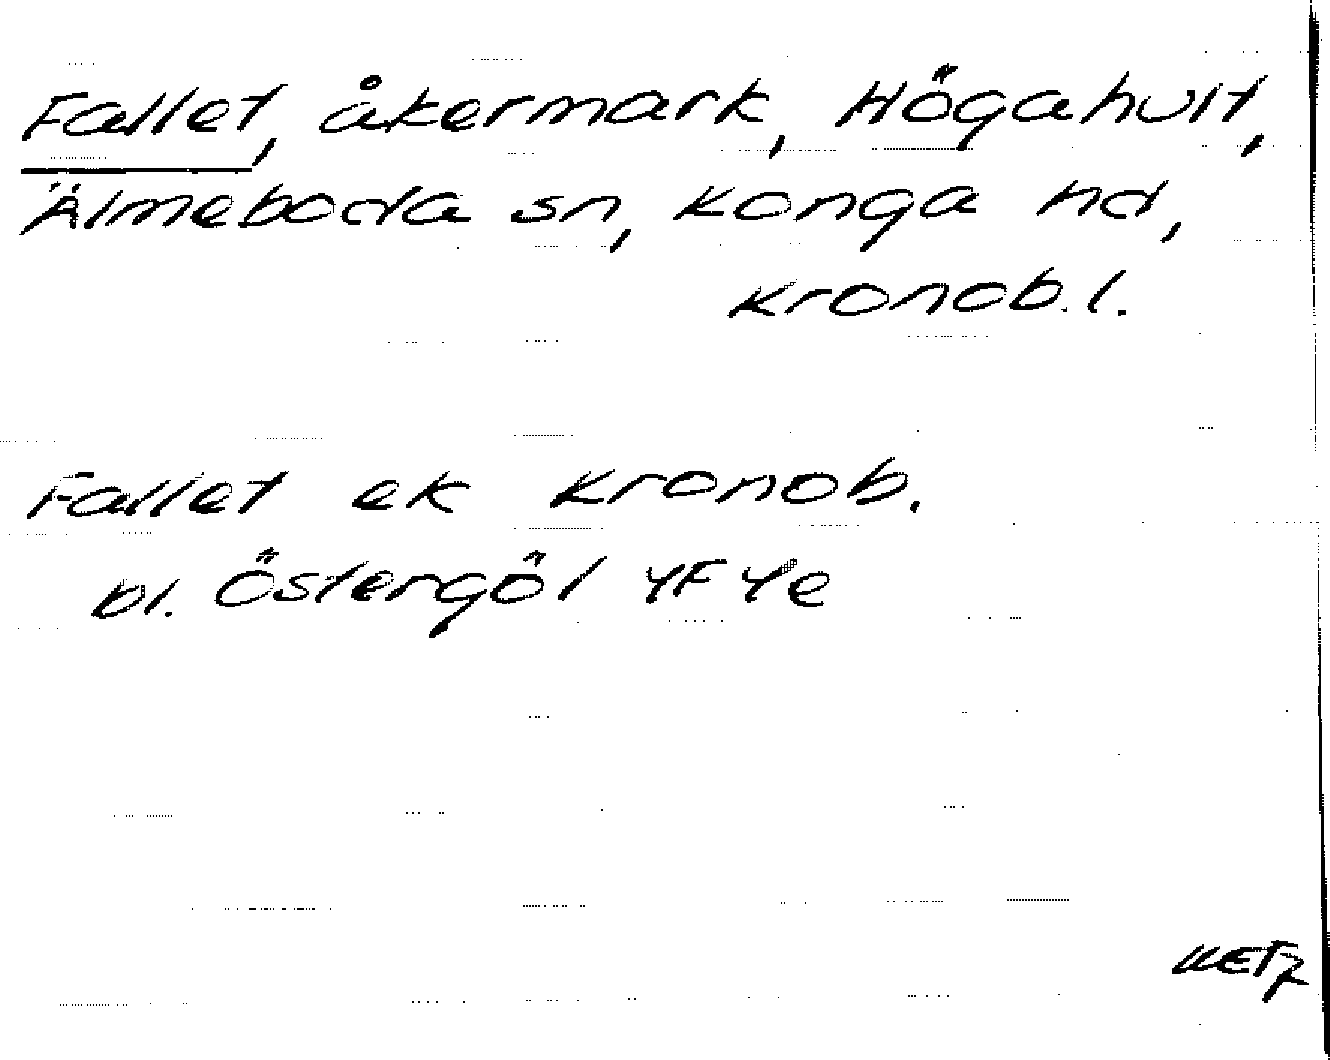 Fallet, åkermark, Högahult,
Älmeboda sn, Konga hd,
Kronob. l.
Fallet ek Kronob.
bl. Östergöl 4F 4e